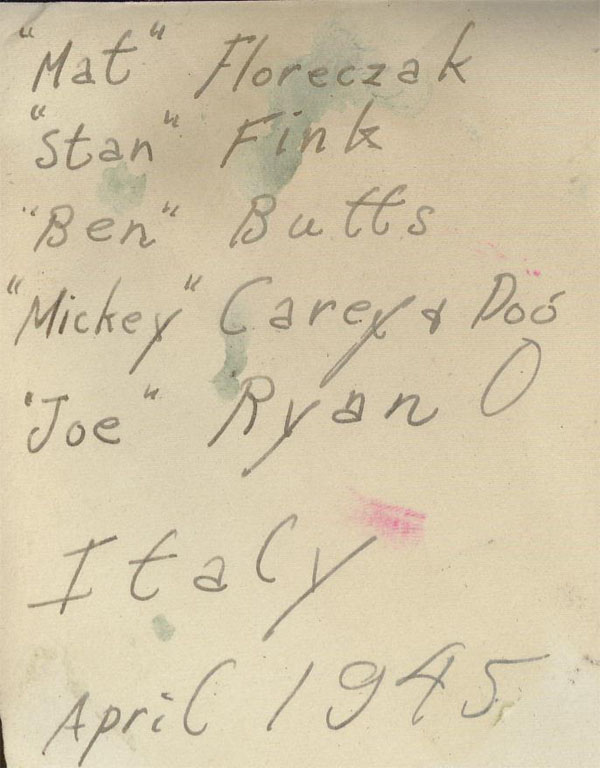 "Mat" Floreczak
"Stan" Fink
"Ben" Butts
"Mickey" Carey & Dog
"Joe" Ryan
Italy
April 1945